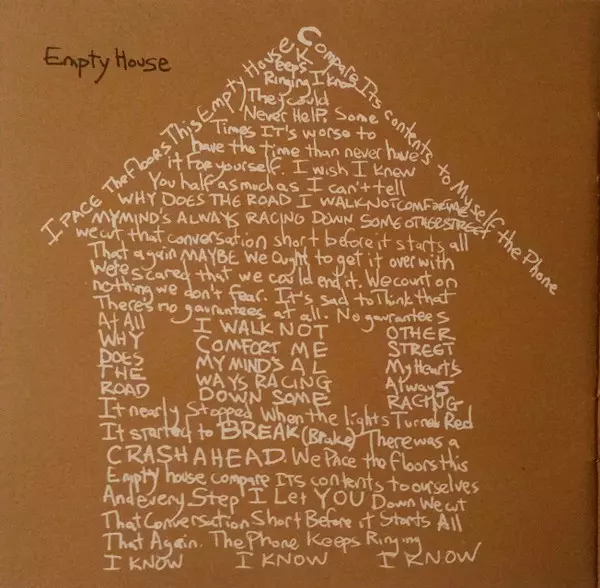 Empty House
I PACE The floors This Empty House
Compare Its contents to Myself the Phone
Keeps
Ringing I know
They could
Never Help. Some
Times IT's worse to
have the time than never have
it For yourself. I wish I knew
You half as much as I can't tell
WHY DOES THE ROAD I WALK NOT COMFORT ME
MY MIND'S ALWAYS RACING DOWN SOME OTHER STREET
We cut that conversation short before it starts all
That again MAYBE We Ought to get it over with
We're scared that we could end it. We count on
nothing we don't fear. It's sad to Think that
There's no gaurantees at all. No gaurantees
At All I WALK NOT OTHER
WHY COMFORT ME STREET
DOES MY MIND'S AL My Heart's
THE WAYS RACING Always
ROAD DOWN SOME RACING
It nearly Stopped When the lights Turned Red
It started to BREAK (Brake) There was a
CRASH AHEAD We Pace the floors this
Empty house compare ITS contents to ourselves
And every Step I Let YOU Down We cut
That Conversation Short Before it Starts All
That Again. The Phone Keeps Ringing
I KNOW I KNOW I KNOW